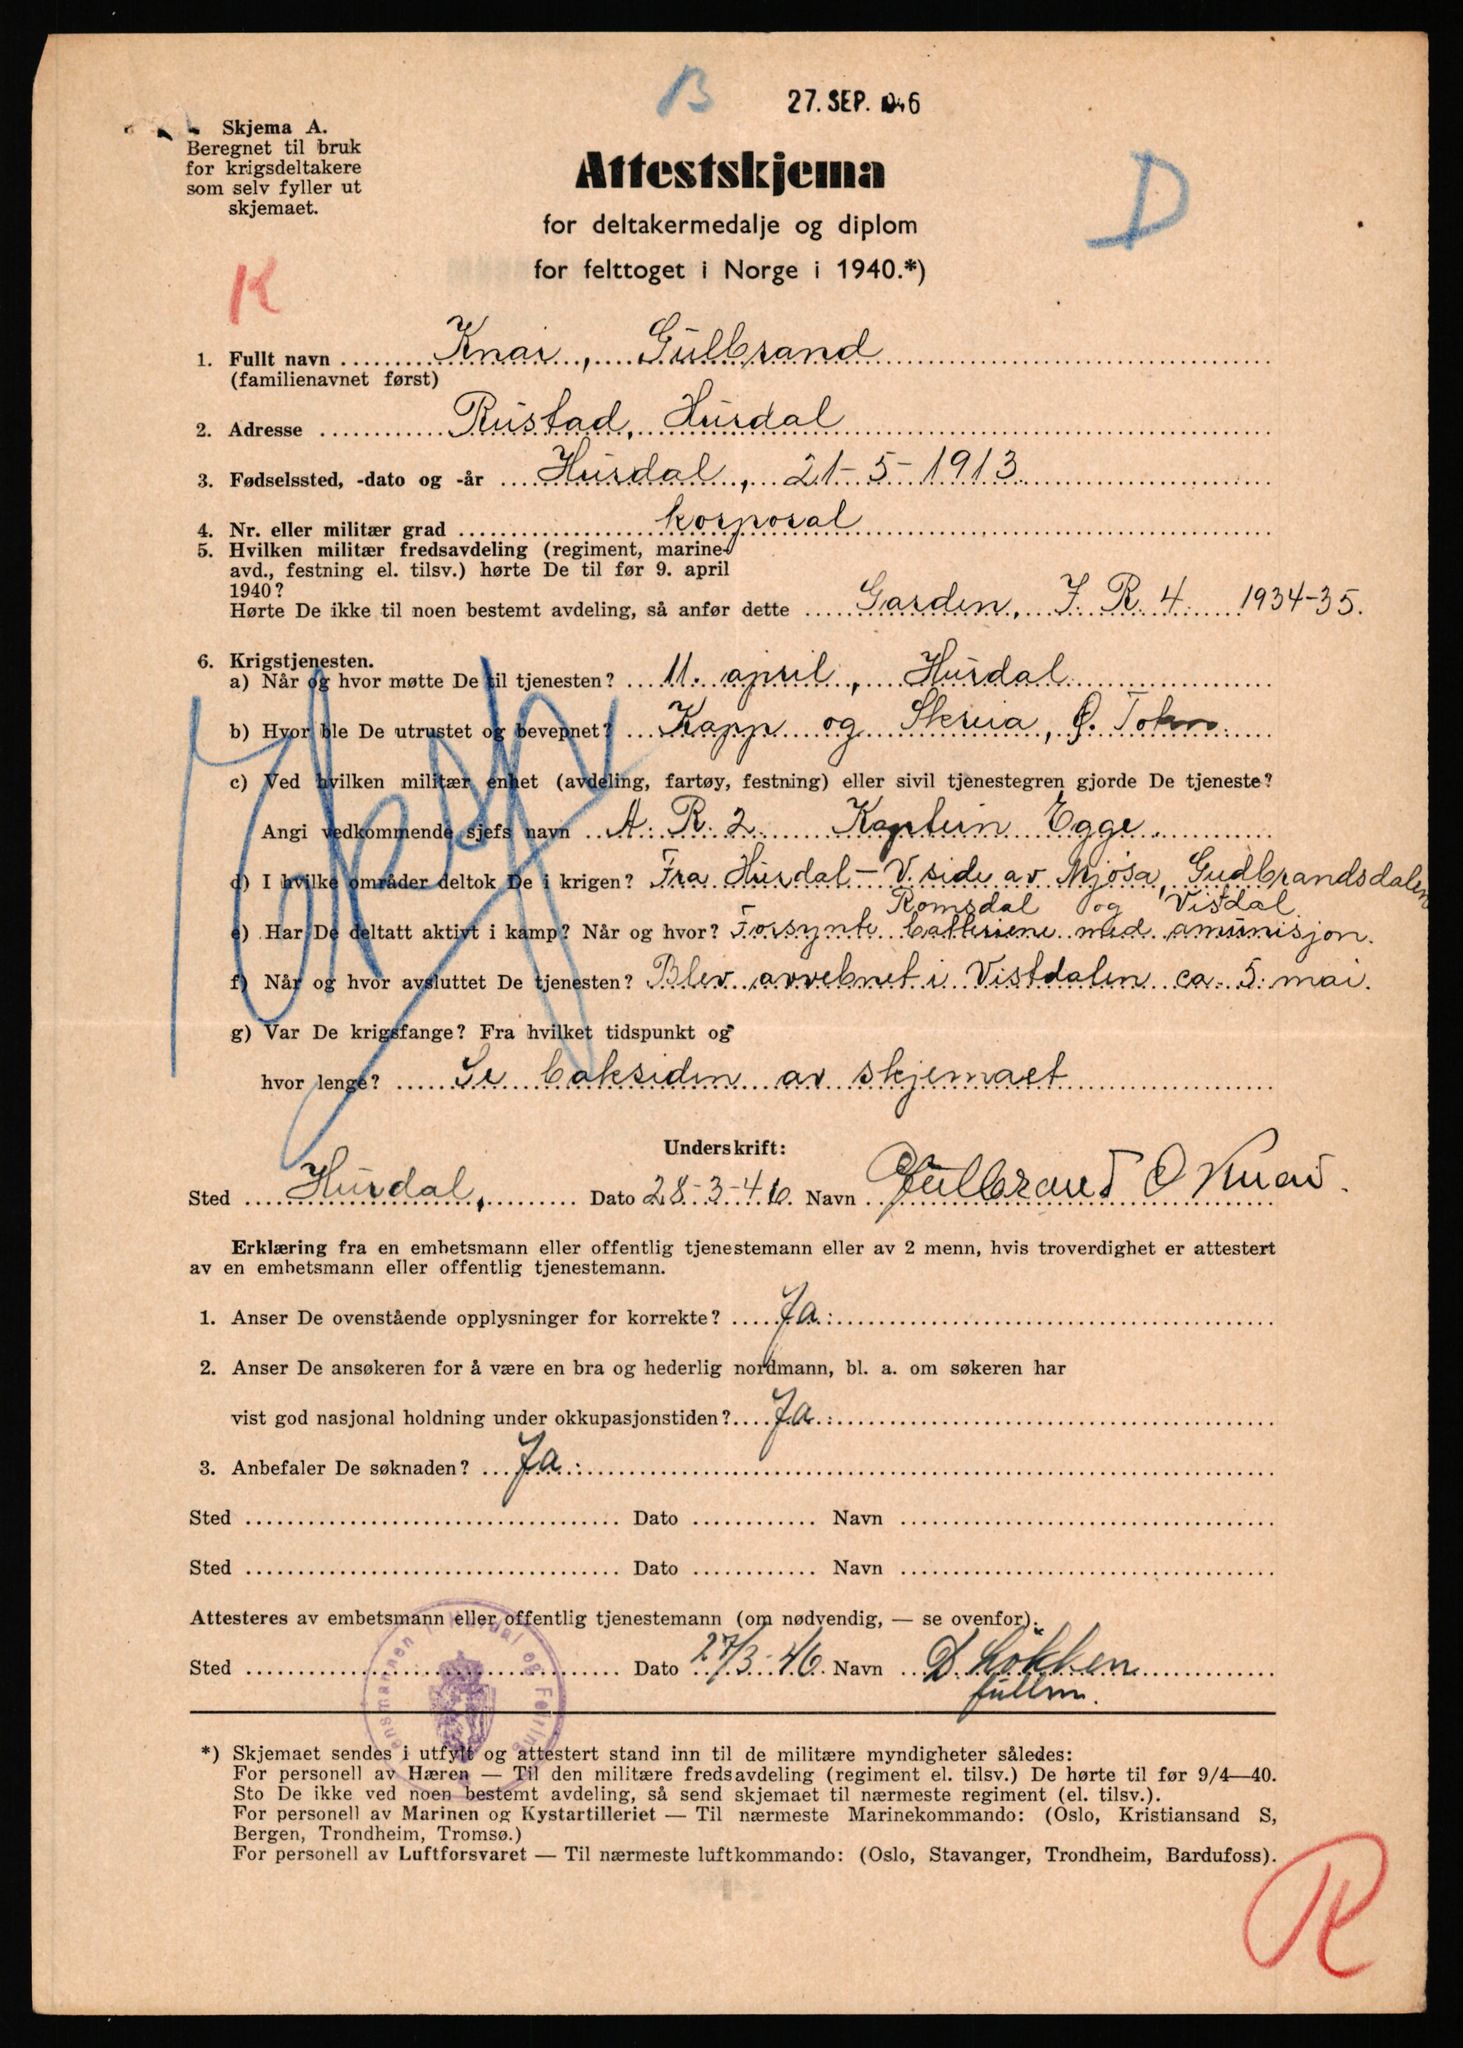 B
27. SEP. 1946
Skjema A.
Beregnet til bruk
for krigsdeltakere
som selv fyller ut
skjemaet.
Attestskjema
for deltakermedalje og diplom
for felttoget i Norge i 1940.*)
D
K
1. Fullt navn Knai, Gulbrand
(familienavnet først)
2. Adresse Rustad, Hurdal
3. Fødselssted, -dato og -år Hurdal, 21-5-1913
4. Nr. eller militær grad korporal
5. Hvilken militær fredsavdeling (regiment, marine-
avd., festning el. tilsv.) hørte De til før 9. april
1940?
Hørte De ikke til noen bestemt avdeling, så anfør dette Garden, I. R. 4 1934-35.
6. Krigstjenesten.
a) Når og hvor møtte De til tjenesten? 11. april, Hurdal
b) Hvor ble De utrustet og bevepnet? Kapp og Skreia, Ø. Toten
c) Ved hvilken militær enhet (avdeling, fartøy, festning) eller sivil tjenestegren gjorde De tjeneste?
Angi vedkommende sjefs navn A. R. 2 Kaptein Egge
d) I hvilke områder deltok De i krigen? Fra Hurdal - V. side av Mjøsa, Gudbrandsdalen
Romsdal og Visdal
e) Har De deltatt aktivt i kamp? Når og hvor? Forsynte batteriene med amunisjon.
f) Når og hvor avsluttet De tjenesten? Blev avvebnet i Vistdalen ca. 5. mai
g) Var De krigsfange? Fra hvilket tidspunkt og
hvor lenge? Se baksiden av skjemaet
Underskrift:
Sted Hurdal, Dato 28-3-46 Navn Gulbrand O Knai.
Erklæring fra en embetsmann eller offentlig tjenestemann eller av 2 menn, hvis troverdighet er attestert
av en embetsmann eller offentlig tjenestemann.
1. Anser De ovenstående opplysninger for korrekte? Ja.
2. Anser De ansøkeren for å være en bra og hederlig nordmann, bl. a. om søkeren har
vist god nasjonal holdning under okkupasjonstiden? Ja.
3. Anbefaler De søknaden? Ja.
Sted Dato Navn
Sted Dato Navn
Attesteres av embetsmann eller offentlig tjenestemann (om nødvendig, — se ovenfor).
Sted Dato 27/3-46. Navn D. Løkken
fullm.
Lensmannen i Hurdal og Feiring
*) Skjemaet sendes i utfylt og attestert stand inn til de militære myndigheter således:
For personell av Hæren — Til den militære fredsavdeling (regiment el. tilsv.) De hørte til før 9/4—40.
Sto De ikke ved noen bestemt avdeling, så send skjemaet til nærmeste regiment (el. tilsv.).
For personell av Marinen og Kystartilleriet — Til nærmeste Marinekommando: (Oslo, Kristiansand S,
Bergen, Trondheim, Tromsø.)
For personell av Luftforsvaret — Til nærmeste luftkommando: (Oslo, Stavanger, Trondheim, Bardufoss).
R